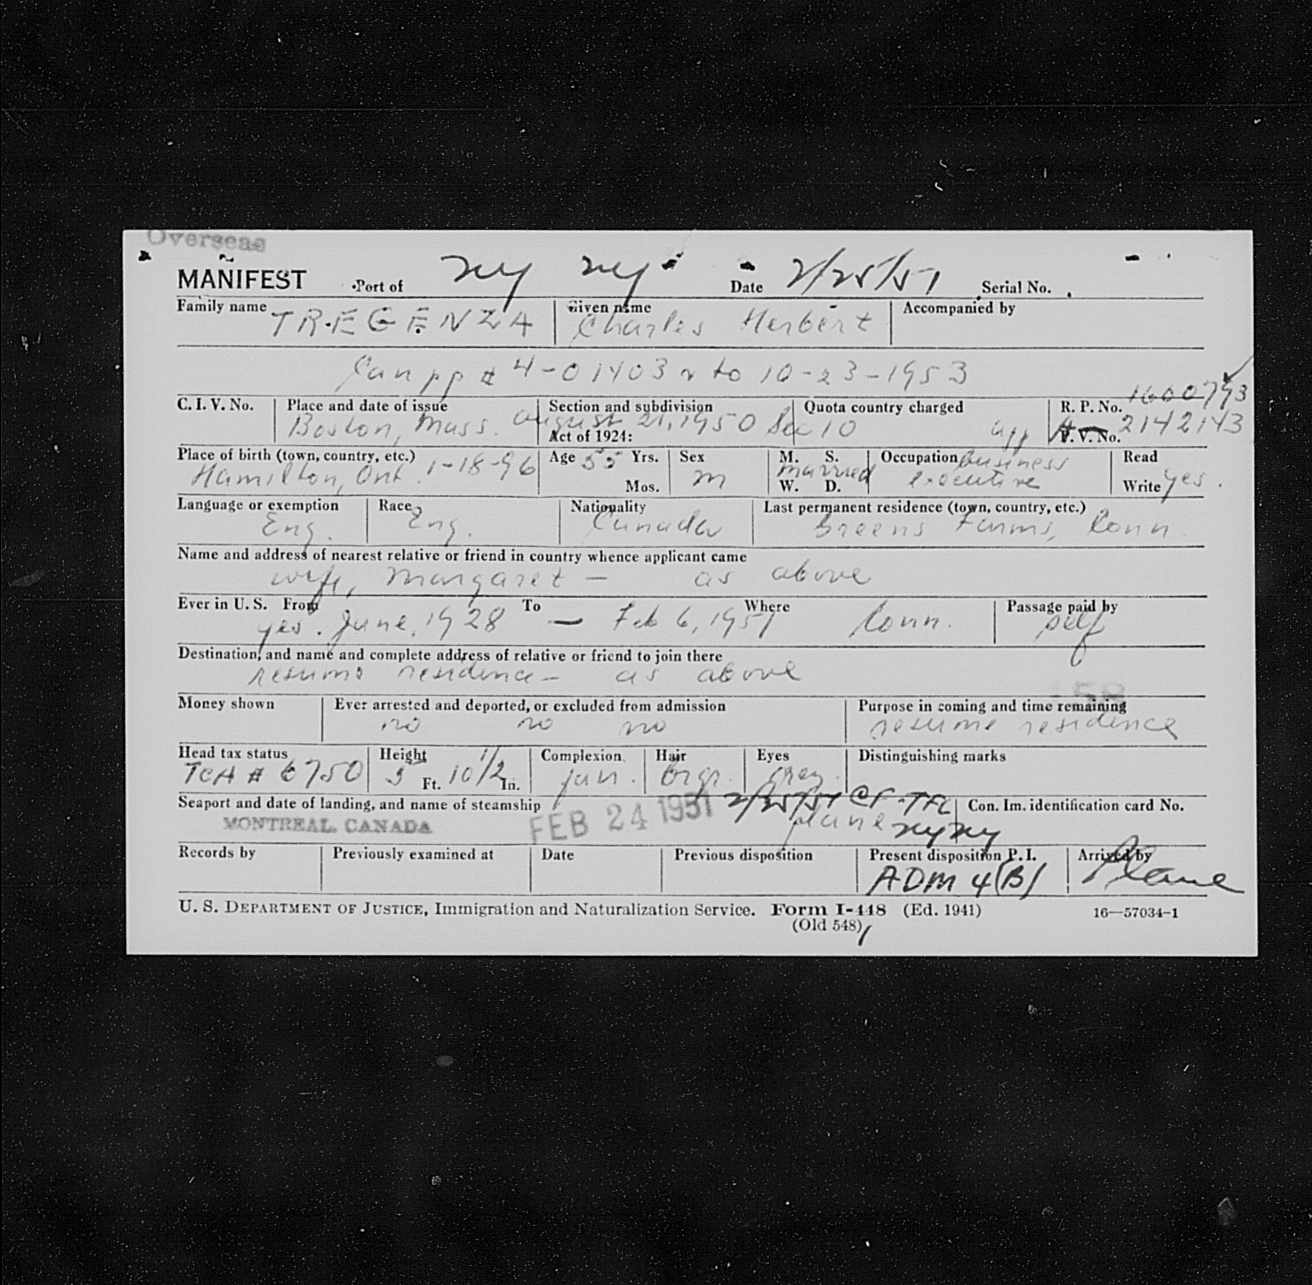 Overseas
MANIFEST Port of NY NY Date 2/25/51 Serial No.
Family name TREGENZA Given name Charles Herbert Accompanied by
Can pp # 4-01403 v to 10-23-1953
1600793
C. I. V. No. Place and date of issue Section and subdivision Quota country charged R. P. No.
Boston, Mass. August 21, 1950 Sec 10 app A- 2142143
Act of 1924: P. V. No.
Place of birth (town, country, etc.) Age 55 Yrs. Sex M. S. Occupation business Read
Hamilton, Ont. 1-18-96 Mos. M married W. D. executive Write yes.
Language or exemption Race Nationality Last permanent residence (town, country, etc.)
Eng. Eng. Canada Greens Farms, Conn.
Name and address of nearest relative or friend in country whence applicant came
wife, Margaret - as above
Ever in U. S. From To Where Passage paid by
yes. June, 1928 - Feb 6, 1951 Conn. self
Destination, and name and complete address of relative or friend to join there
resume residence - as above
Money shown Ever arrested and deported, or excluded from admission Purpose in coming and time remaining
no no no resume residence
Head tax status Height Complexion Hair Eyes Distinguishing marks
TCA # 6750 5 Ft. 10 1/2 In. br gr. grey
Seaport and date of landing, and name of steamship FEB 24 1951 2/25/51 CF-TFL Con. Im. identification card No.
MONTREAL, CANADA plane NY NY
Records by Previously examined at Date Previous disposition Present disposition P. I. Arrived by
ADM 4(B) Plane
U. S. DEPARTMENT OF JUSTICE, Immigration and Naturalization Service. Form I-448 (Ed. 1941) 16—57034-1
(Old 548)